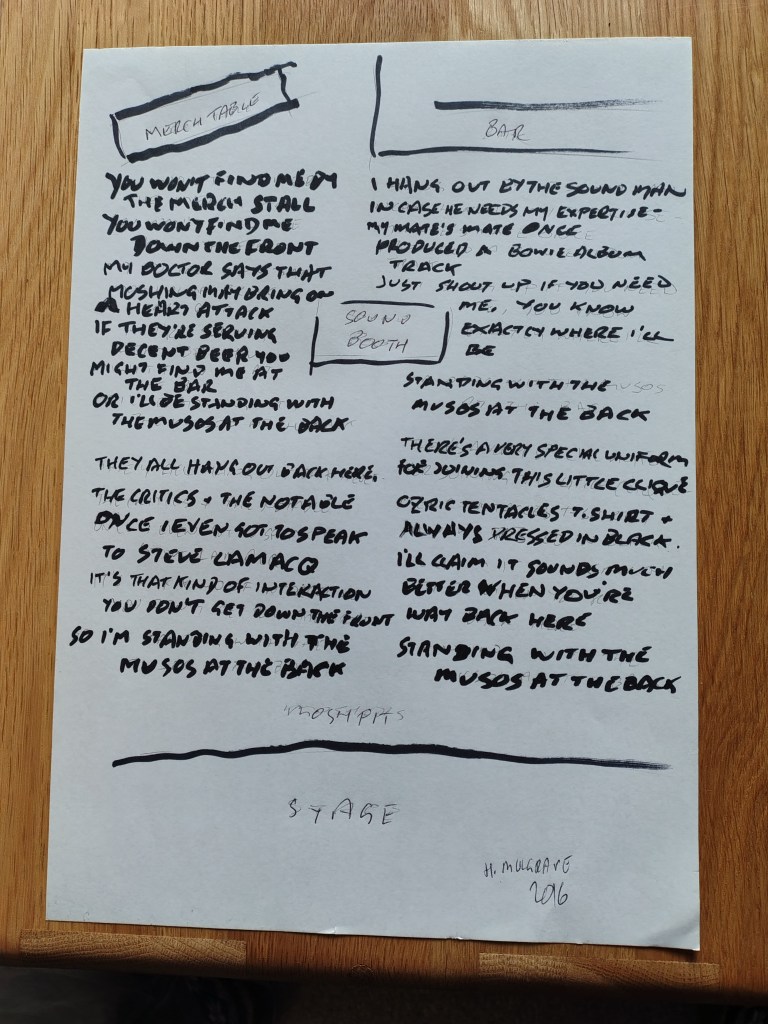 MERCH TABLE
BAR
YOU WON'T FIND ME BY
THE MERCH STALL
YOU WON'T FIND ME
DOWN THE FRONT
MY DOCTOR SAYS THAT
MOSHING MAY BRING ON
A HEART ATTACK
IF THEY'RE SERVING
DECENT BEER YOU
MIGHT FIND ME AT
THE BAR
OR I'LL BE STANDING WITH
THE MUSOS AT THE BACK
THEY ALL HANG OUT BACK HERE,
THE CRITICS + THE NOTABLE
ONCE I EVEN GOT TO SPEAK
TO STEVE LAMACQ
IT'S THAT KIND OF INTERACTION
YOU DON'T GET DOWN THE FRONT
SO I'M STANDING WITH THE
MUSOS AT THE BACK
SOUND
BOOTH
I HANG OUT BY THE SOUND MAN
IN CASE HE NEEDS MY EXPERTISE -
MY MATE'S MATE ONCE
PRODUCED A BOWIE ALBUM
TRACK
JUST SHOUT UP IF YOU NEED
ME, YOU KNOW
EXACTLY WHERE I'LL
BE
STANDING WITH THE
MUSOS AT THE BACK
THERE'S A VERY SPECIAL UNIFORM
FOR JOINING THIS LITTLE CLIQUE
OZRIC TENTACLES T.SHIRT +
ALWAYS DRESSED IN BLACK.
I'LL CLAIM IT SOUNDS MUCH
BETTER WHEN YOU'RE
WAY BACK HERE
STANDING WITH THE
MUSOS AT THE BACK
STAGE
H. MULGRAVE
2016